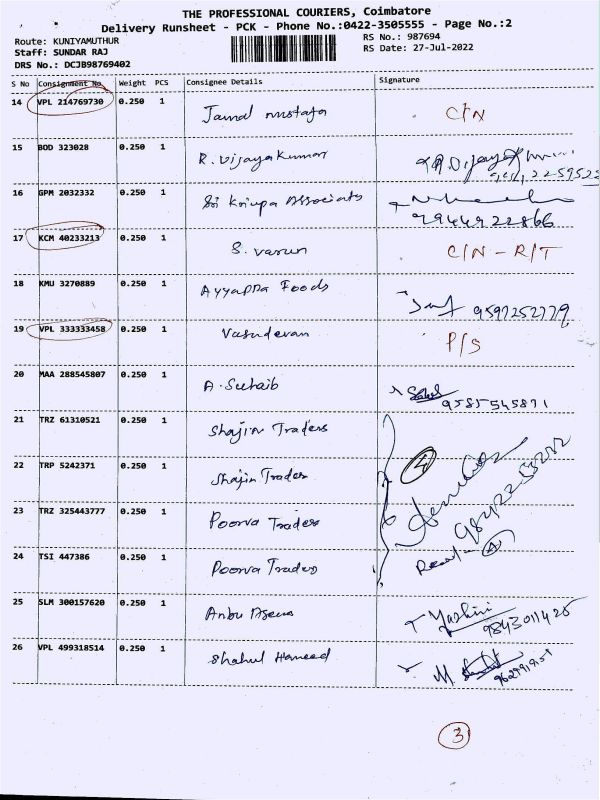 THE PROFESSIONAL COURIERS, Coimbatore
Delivery Runsheet - PCK - Phone No.:0422-3505555 - Page No.:2
Route: KUNIYAMUTHUR RS No.: 987694
Staff: SUNDAR RAJ RS Date: 27-Jul-2022
DRS No.: DCJB98769402
S No Consignment No. Weight PCS Consignee Details Signature
14 VPL 214769730 0.250 1 Jamal mustafa C/N
15 BOD 323028 0.250 1 R. Vijayakumar
16 GPM 2032332 0.250 1 Sri Krupa Associates
9944922866
17 KCM 40233213 0.250 1 S. Varun C/N - R/T
18 KMU 3270889 0.250 1 Ayyappa Foods
9597252779
19 VPL 333333458 0.250 1 Vasudevan P/S
20 MAA 288545807 0.250 1 A. Suhaib
9585545871
21 TRZ 61310521 0.250 1 Shajin Traders
22 TRP 5242371 0.250 1 Shajin Traders
4
23 TRZ 325443777 0.250 1 Poorva Traders
24 TSI 447386 0.250 1 Poorva Traders
4
25 SLM 300157620 0.250 1 Anbu Yashini
9843011425
26 VPL 499318514 0.250 1 Shahul Hameed M
3